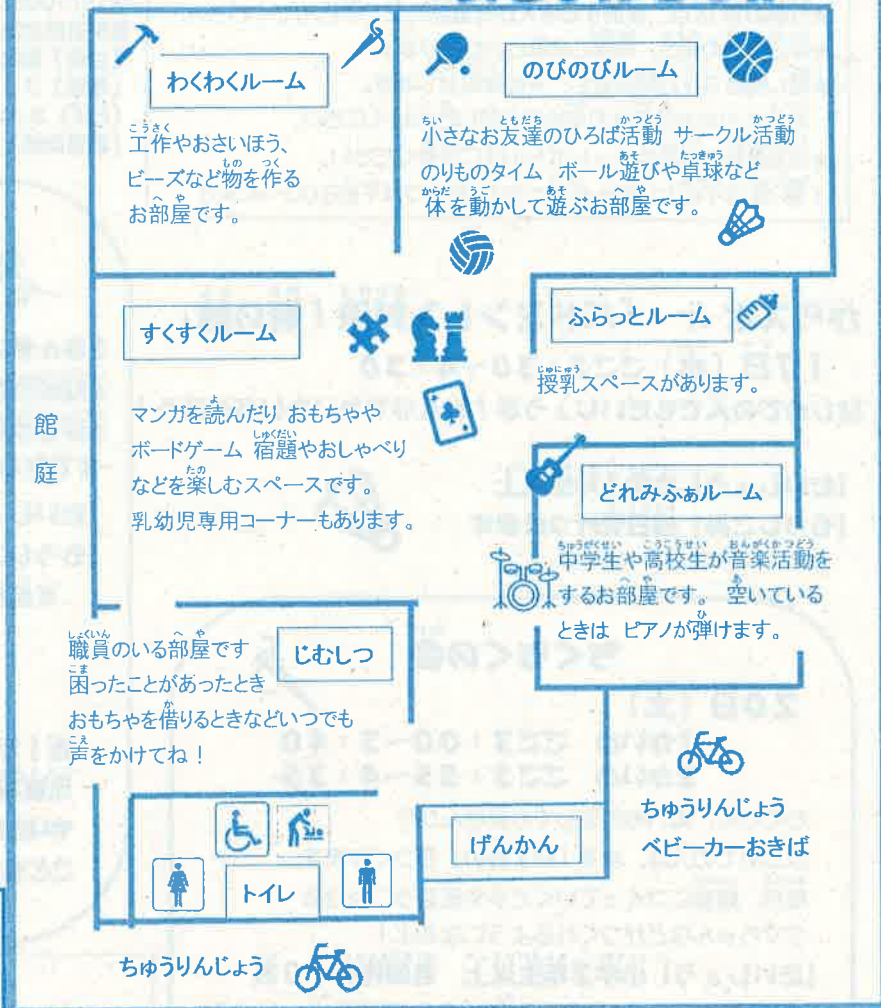 わくわくルーム
工作やおさいほう、
ビーズなど物を作る
お部屋です。
のびのびルーム
小さなお友達のひろば活動 サークル活動
のりものタイム ボール遊びや卓球など
体を動かして遊ぶお部屋です。
すくすくルーム
マンガを読んだり おもちゃや
ボードゲーム 宿題やおしゃべり
などを楽しむスペースです。
乳幼児専用コーナーもあります。
ふらっとルーム
授乳スペースがあります。
館庭
どれみふぁルーム
中学生や高校生が音楽活動を
するお部屋です。 空いている
ときは ピアノが弾けます。
職員のいる部屋です
じむしつ
困ったことがあったとき
おもちゃを借りるときなどいつでも
声をかけてね！
ちゅうりんじょう
ベビーカーおきば
げんかん
トイレ
ちゅうりんじょう